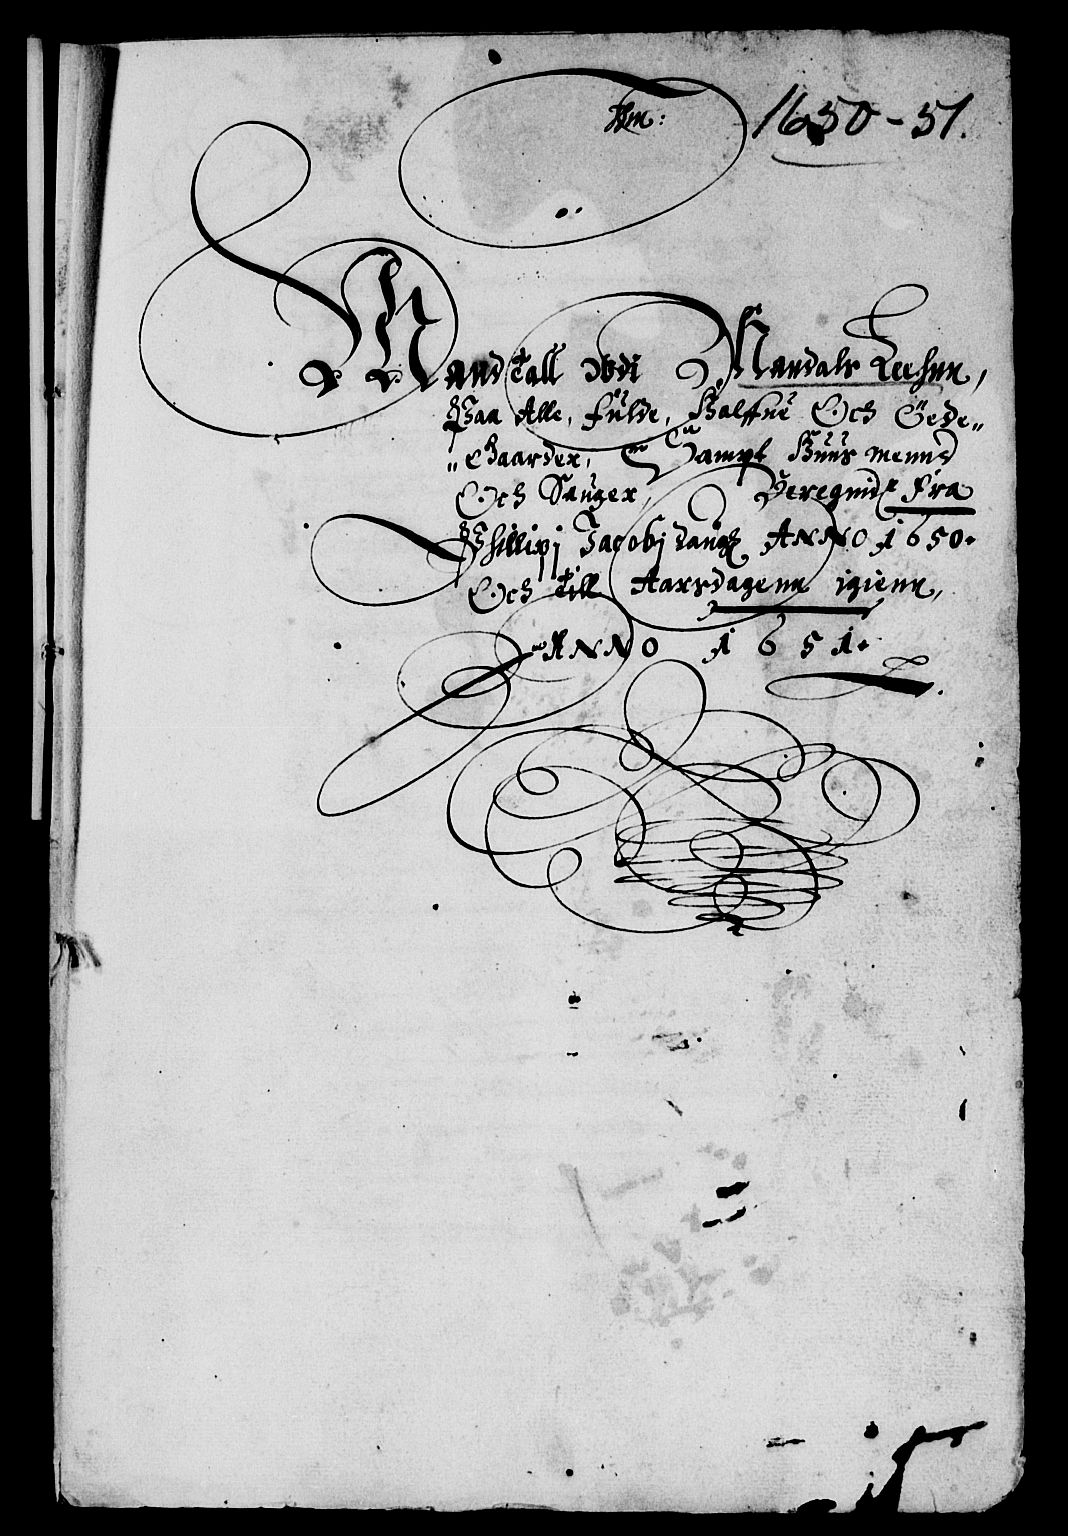 1650-51.
Mandtall Udi Mandals Leehnn,
Paa Alle, fulde, Halffue Och Øede-
"Gaarder, Sampt Huus mennd
Och Sauger, Beregnid fra
Phillipj Jacobj Daugh ANNO 1650.
Och Till Aarsdagenn igienn,
ANNO 1651.